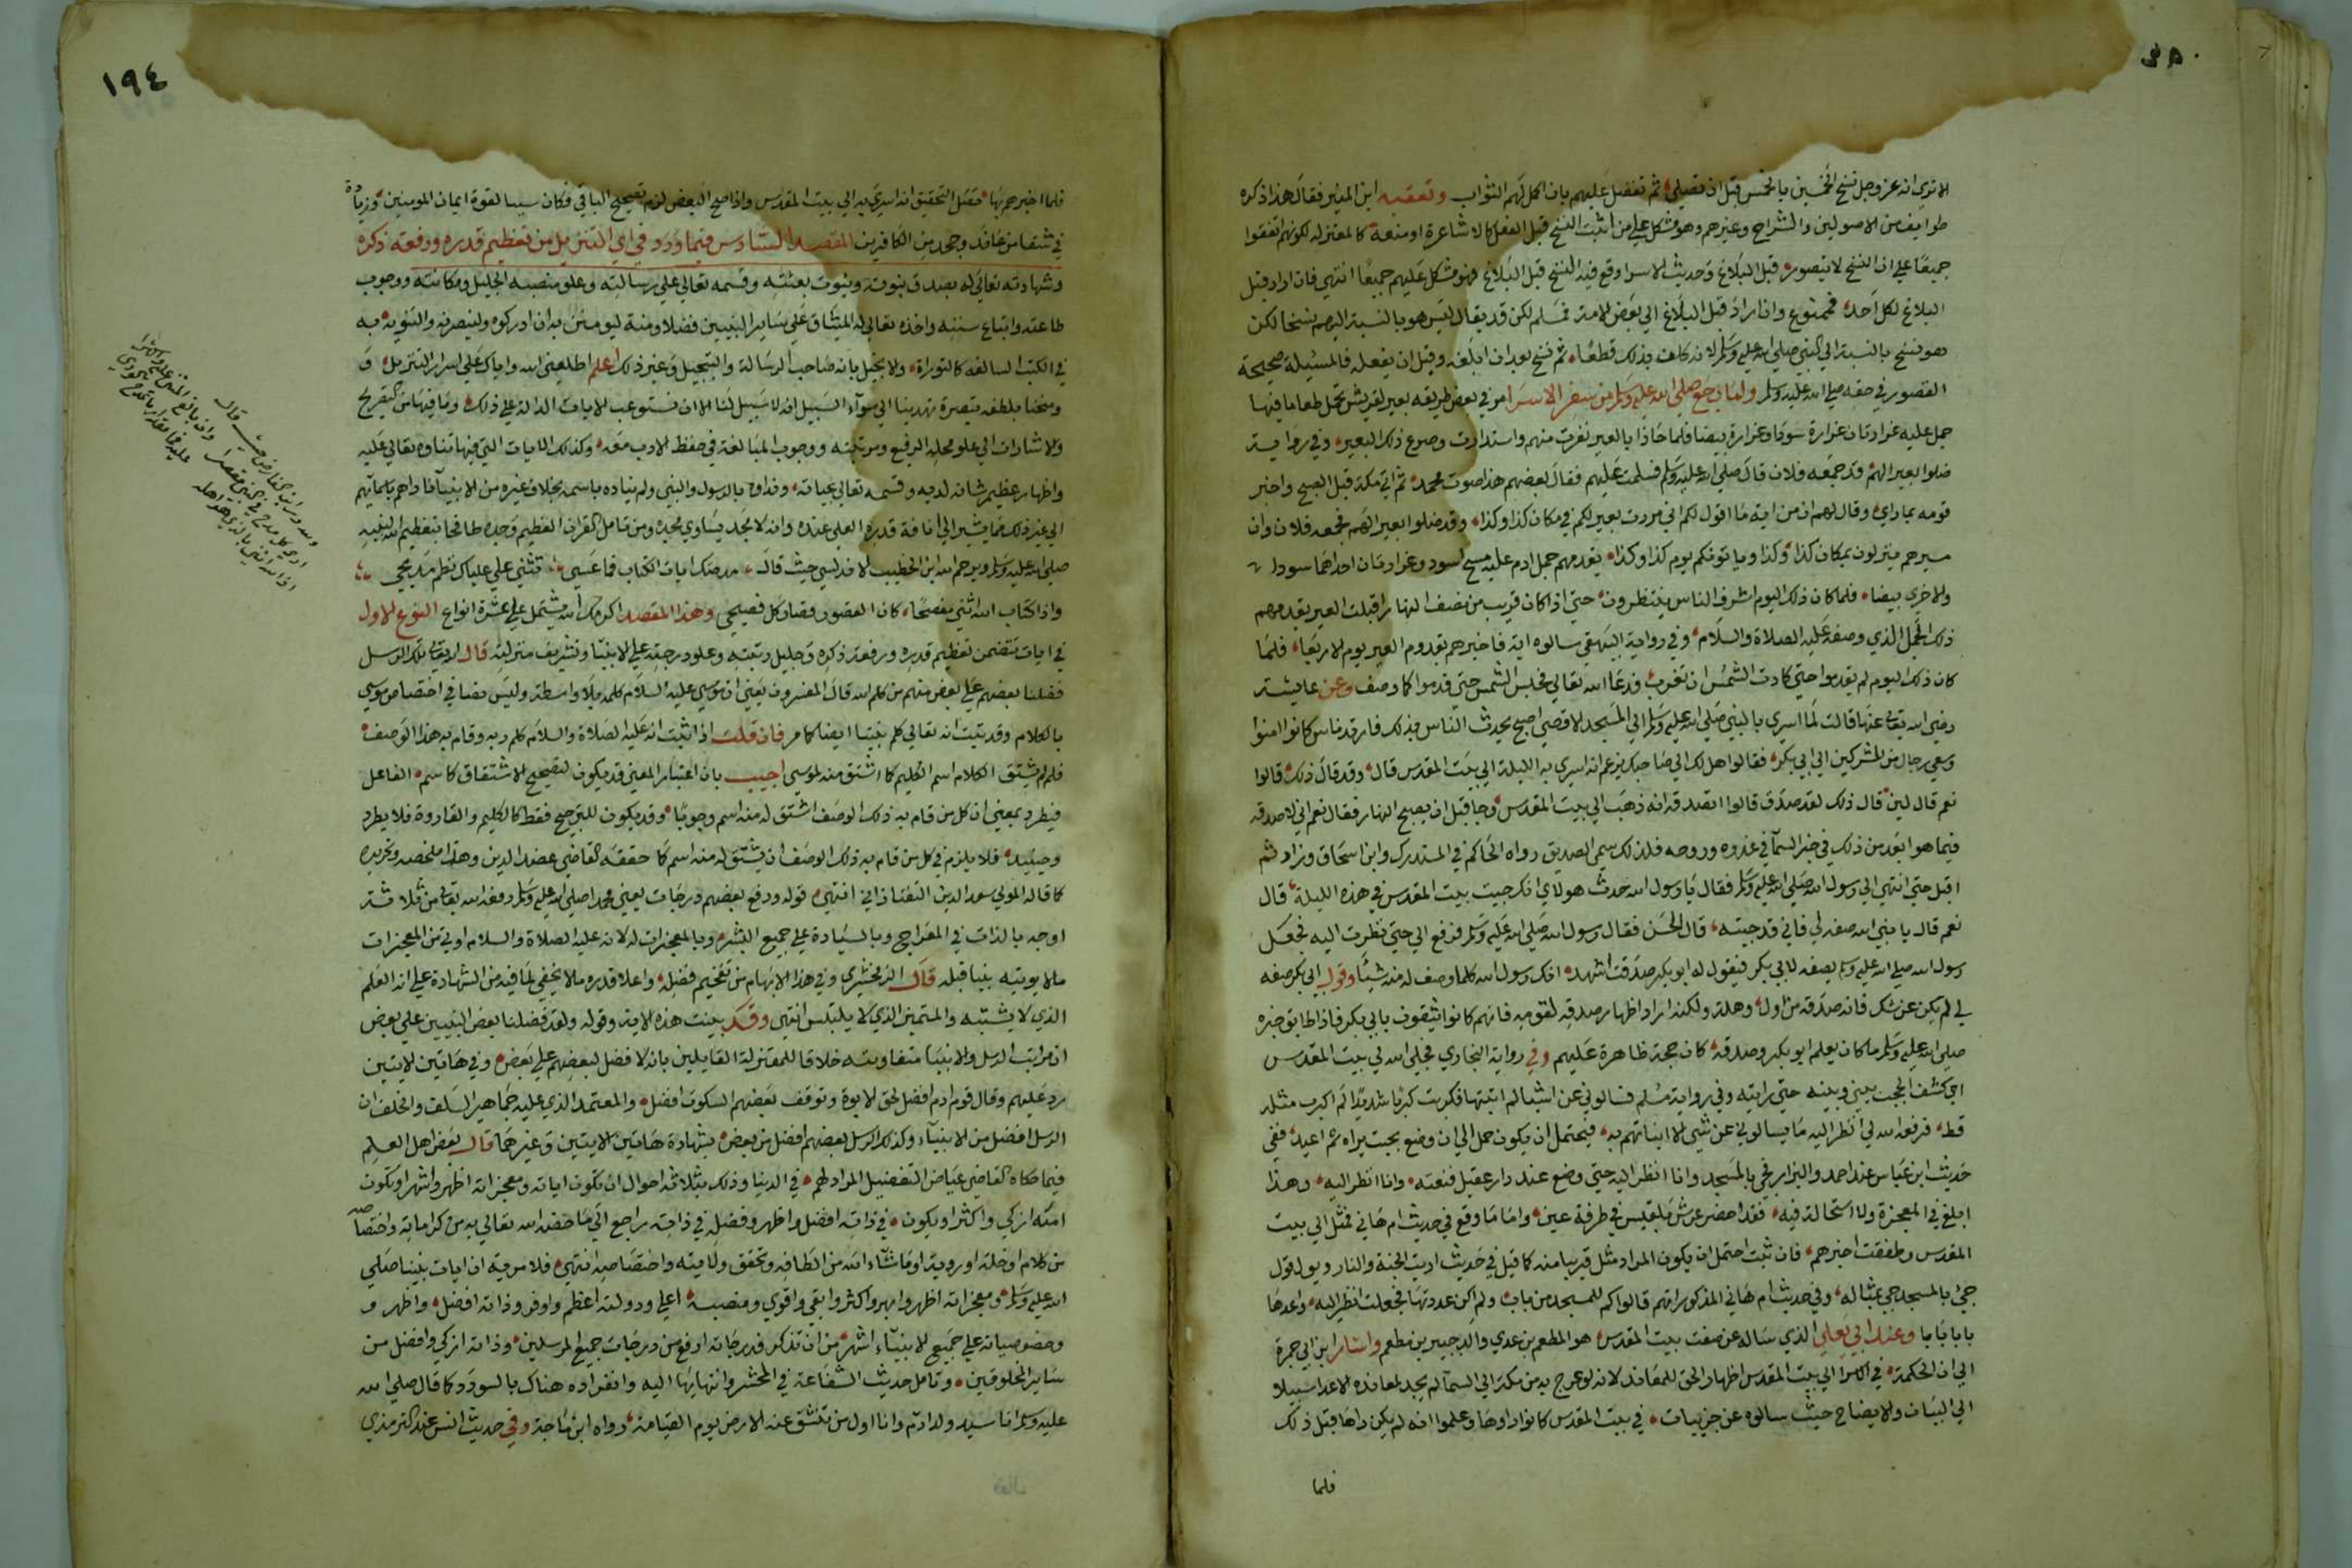 الا ترى انه عز وجل نسخ الخمسين بالخمس قبل ان تصلى ثم تفضل عليهم بان اكمل لهم الثواب وتعقبه ابن المنير فقال هذا ذكره
طوايف من الاصوليين والشراح وغيرهم وهو مشكل على من اثبت النسخ قبل الفعل كالاشاعرة او منعه كالمعتزله لكونهم اتفقوا
جميعا على ان النسخ لا يتصور قبل البلاغ وحديث الاسرا وقع فيه النسخ قبل البلاغ فهو مشكل عليهم جميعا انتهى فان اراد قبل
البلاغ لكل احد فممنوع وان اراد قبل البلاغ الى بعض الامة فمسلم لكن قد يقال ليس هو بالنسبة اليهم نسخا لكن
هو نسخ بالنسبة الى النبي صلى الله عليه وسلم لانه كلف بذلك قطعا ثم نسخ بعد ان ابلغه وقبل ان يفعله فالمسيلة صحيحة
التصوير في حقه صلى الله عليه وسلم ولما رجع صلى الله عليه وسلم من سفر الاسرا مر في بعض طريقه بعير لقريش تحمل طعاما فيها
جمل عليه غرارتان غرارة سودا وغرارة بيضا فلما حاذا بالعير نفرت منهم واستدارت وصرع ذلك البعير وفي رواية
ضلوا بعيرا لهم قد جمعه فلان قال صلى الله عليه وسلم فسلمت عليهم فقال بعضهم هذا صوت محمد ثم اتى مكة قبل الصبح واخبر
قومه بما راى وقال لهم ان من اية ما اقول لكم انى مررت بعير لكم في مكان كذا وكذا وقد ضلوا بعيرا لهم فجمعه فلان وان
مسيرهم ينزلون بمكان كذا وكذا وياتونكم يوم كذا وكذا يقدمهم جمل ادم عليه مسح اسود وغرارتان احداهما سودا
والاخرى بيضا فلما كان ذلك اليوم اشرف الناس ينتظرون حتى اذا كان قريب من نصف النهار اقبلت العير يقدمهم
ذلك الجمل الذي وصفه عليه الصلاة والسلام وفي رواية البيهقي سالوه اية فاخبرهم بقدوم العير يوم الاربعا فلما
كان ذلك اليوم لم يقدموا حتى كادت الشمس ان تغرب فدعا الله تعالى فحبس الشمس حتى قدموا كما وصف وعن عايشة
رضي الله تعالى عنها قالت لما اسري بالنبي صلى الله عليه وسلم الى المسجد الاقصى اصبح يحدث الناس بذلك فارتد ناس كانوا امنوا
وسعى رجال من المشركين الى ابي بكر فقالوا هل لك الى صاحبك يزعم انه اسري به الليلة الى بيت المقدس قال وقد قال ذلك قالوا
نعم قال لين قال ذلك لقد صدق قالوا اتصدقه انه ذهب الى بيت المقدس وجا قبل ان يصبح النهار فقال نعم اني لاصدقه
فيما هو ابعد من ذلك في خبر السما في غدوه وروحه فلذلك سمي الصديق رواه الحاكم في المستدرك وابن اسحاق وزاد ثم
اقبل حتى انتهى الى رسول الله صلى الله عليه وسلم فقال يا رسول الله حدث هولاي انك جيت بيت المقدس في هذه الليلة قال
نعم قال يا نبي الله صفه لي فاني قد جيته قال الحسن فقال رسول الله صلى الله عليه وسلم فرفع الي حتى نظرت اليه فجعل
رسول الله صلى الله عليه وسلم يصفه لابي بكر فيقول له ابو بكر صدقت اشهد انك رسول الله كلما وصف له منه شيئا وقول ابي بكر صفه
لي لم يكن عن شك فانه صدقه من اول وهلة ولكنه اراد اظهار صدقه لقومه فانهم كانوا يثقون بابي بكر فاذا طابق خبره
صلى الله عليه وسلم ما كان يعلم ابو بكر وصدقه كان حجة ظاهرة عليهم وفي رواية البخاري فجلى الله لي بيت المقدس
اي كشف الحجب بيني وبينه حتى رايته وفي رواية مسلم فسالوني عن اشيا لم اثبتها فكربت كربا شديدا لم اكرب مثله
قط فرفعه الله لي انظر اليه ما يسالوني عن شيى الا انباتهم به فيحتمل ان يكون حمل الى ان وضع بحيث يراه ثم اعيد ففي
حديث ابن عباس عند احمد والبزار فجي بالمسجد وانا انظر اليه حتى وضع عند دار عقيل فنعته وانا انظر اليه وهذا
ابلغ في المعجزة ولا استحالة فيه فقد احضر عرش بلقيس في طرفة عين واما ما وقع في حديث ام هاني فمثل الى بيت
المقدس وطفقت اخبرهم فان ثبت احتمل ان يكون المراد مثل قريبا منه كما قيل في حديث اريت الجنة والنار ويول قول
جئ بالمسجد جي بمثاله وفي حديث ام هاني المذكور انهم قالوا كم للمسجد من باب ولم اكن عددتها فجعلت انظر اليه واعدها
بابا بابا وعند ابي يعلى الذي ساله عن صفت بيت المقدس هو المطعم بن عدي والد جبير بن مطعم واشار ابن ابي جمرة
الى ان الحكمة في الاسرا الى بيت المقدس اظهار الحق للمعاند لانه لو عرج به من مكة الى السما لم يجد لمعانده الاعدا سبيلا
الى البيان والايضاح حيث سالوه عن جزييات في بيت المقدس كانوا راوها وعلموا انه لم يكن راها قبل ذلك
فلما
١٩٤
فلما اخبرهم بها حصل التحقيق انه اسري به الى بيت المقدس واذا صح البعض لزم تصحيح الباقي فكان سببا لقوة ايمان المومنين وزيادة
في شقا من عاند وجحد من الكافرين المقصد السادس فيما ورد في اي التنزيل من تعظيم قدره ورفعة ذكره
وشهادته تعالى له بصدق نبوته وثبوت بعثته وقسمه تعالى على رسالته وعلو منصبه الجليل ومكانته ووجوب
طاعته واتباع سنته واخذه تعالى له الميثاق على ساير النبيين فضلا ومنة ليومنن به ان ادركوه ولينصرنه والتنويه به
في الكتب السالفه كالتوراة ولا نجيل بانه صاحب الرسالة والتبجيل وغير ذلك اعلم اطلعني الله واياك على اسرار التنزيل و
ومنحنا بلطفه تبصرة تهدينا الى سوآء السبيل انه لا سبيل لنا الا ان نستوعب الايات الدالة على ذلك وما فيها من التصريح
والاشارات الى علو محله الرفيع ومرتبته ووجوب المبالغة في حفظ الادب معه وكذلك الايات التي فيها ثناوه تعالى عليه
واظهار عظيم شانه لديه وقسمه تعالى بحياته ونداوه بالرسول والنبي ولم يناده باسمه بخلاف غيره من الانبيا فناداهم باسمائهم
الى غير ذلك مما يشير الى انافة قدره العلي عنده وانه لا مجد يساوي مجده ومن تامل القران العظيم وجده طافحا بتعظيم الله لنبيه
صلى الله عليه وسلم ويرحم الله ابن الخطيب الاندلسي حيث قال مدحتك ايات الكتاب فما عسى يثني على علياك نظم مديحي
واذا كتاب الله اثنى مفصحا كان القصور قصار كل فصيح وهذا المقصد اكرمك الله يشتمل على عشرة انواع النوع الاول
في ايات تتضمن تعظيم قدره ورفعة ذكره وجليل رتبته وعلو درجته على الانبيا وتشريف منزلته قال الله تعالى تلك الرسل
فضلنا بعضهم على بعض منهم من كلم الله قال المفسرون يعني ان موسى عليه السلام كلمه بلا واسطة وليس نصا في اختصاص موسى
بالكلام وقد ثبت انه تعالى كلم نبينا ايضا كما مر فان قلت اذا ثبت انه عليه الصلاة والسلام كلم ربه وقام به هذا الوصف
فلم لم يشتق الكلام اسم الكليم كما اشتق منه لموسى اجيب بان اعتبار المعنى قد يكون لتصحيح الاشتقاق كاسم الفاعل
فيطرد بمعنى ان كل من قام به ذلك الوصف اشتق له منه اسم وجوبا وقد يكون للترجيح فقط كالكليم والقارورة فلا يطرد
وحينيذ فلا يلزم في كل من قام به ذلك الوصف ان يشتق له منه اسم كما حققه القاضي عضد الدين وهذا ملخصه وتحريره
كما قاله المولى سعد الدين التفتازاني انتهى قوله ورفع بعضهم درجات يعني محمدا صلى الله عليه وسلم رفعه الله تعالى من ثلاثة
اوجه بالذات في المعراج وبالسيادة على جميع البشر وبالمعجزات له لانه عليه الصلاة والسلام اوتي من المعجزات
مالا يوتيه نبيا قبله قال الزمخشري وفي هذا الابهام من تفخيم فضله واعلا قدره ما لا يخفى لما فيه من الشهادة على انه العلم
الذي لا يشتبه والمتميز الذي لا يلتبس انتهى وقد بينت هذه الاية وقوله ولقد فضلنا بعض النبيين على بعض
ان مراتب الرسل والانبيا متفاوته خلافا للمعتزلة القايلين بانه لا فضل لبعضهم على بعض وفي هاتين الايتين
رد عليهم وقال قوم ادم افضل لحق الابوة وتوقف بعضهم السكوت افضل والمعتمد الذي عليه جماهير السلف والخلف ان
الرسل افضل من الانبيآء وكذلك الرسل بعضهم افضل من بعض بشهادة هاتين الايتين وغيرهما قال بعض اهل العلم
فيما حكاه القاضي عياض التفضيل المراد لهم في الدنيا وذلك بثلاثة احوال ان تكون اياته ومعجزاته اظهر واشهر او تكون
امته ازكى واكثر او يكون في ذاته افضل واظهر وفضله في ذاته راجع الى ما خصه الله تعالى به من كراماته واختصاصه
من كلام او خلة او روية او ما شاء الله من الطافه وتحقق ولايته واختصاصه انتهى فلا مرية ان ايات نبينا صلى
الله عليه وسلم ومعجزاته اظهر وابهر واكثر وابقى واقوى ومنصبه اعلى ودولته اعظم واوفر وذاته افضل واظهر و
وخصوصياته على جميع الانبيآء اشهر من ان تذكر فدرجاته ارفع من درجات جميع المرسلين وذاته ازكى وافضل من
ساير المخلوقين وتامل حديث الشفاعة في المحشر وانتهايها اليه وانفراده هناك بالسودد كما قال صلى الله
عليه وسلم انا سيد ولد ادم وانا اول من تنشق عنه الارض يوم القيامة رواه ابن ماجة وفي حديث انس عند الترمذي